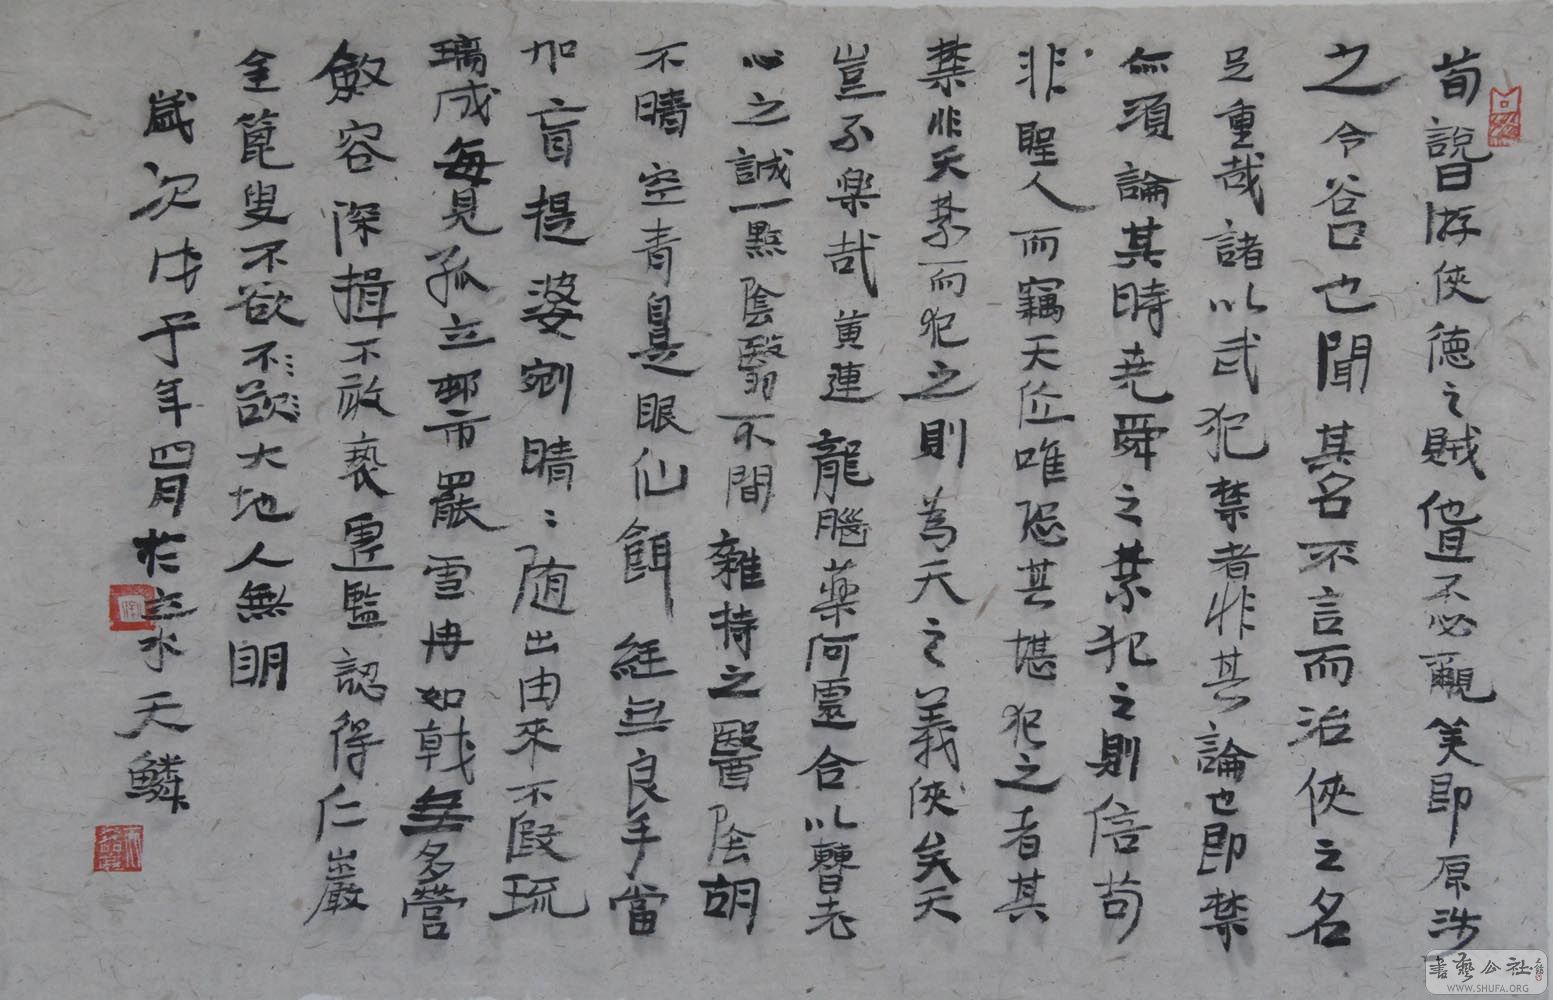 荀說游俠德之賊他直不必覶笑即原涉
之令谷口也聞其名不言而治俠之名
足重哉諸以武犯禁者非其論也即禁
亦須論其時堯舜之禁犯之則倍苟
非聖人而竊天位唯恐其堪犯之者其
禁非天禁而犯之則為天之義俠矣天
豈不樂哉黃連龍腦藥何靈合以瞽老
心之誠一點陰翳不間雜持之醫陰胡
不晴空青自是眼仙餌經無良手當
加盲提婆剜睛睛隨出由來不假琉
璃成每見孤立郵市罷雪冉如戟無多營
斂容深揖不敢褻靈監認得仁巖
金篦叟不欲不欲大地人無明
歲次戊子年四月於立水天鱗
書藝公社
WWW.SHUFA.ORG